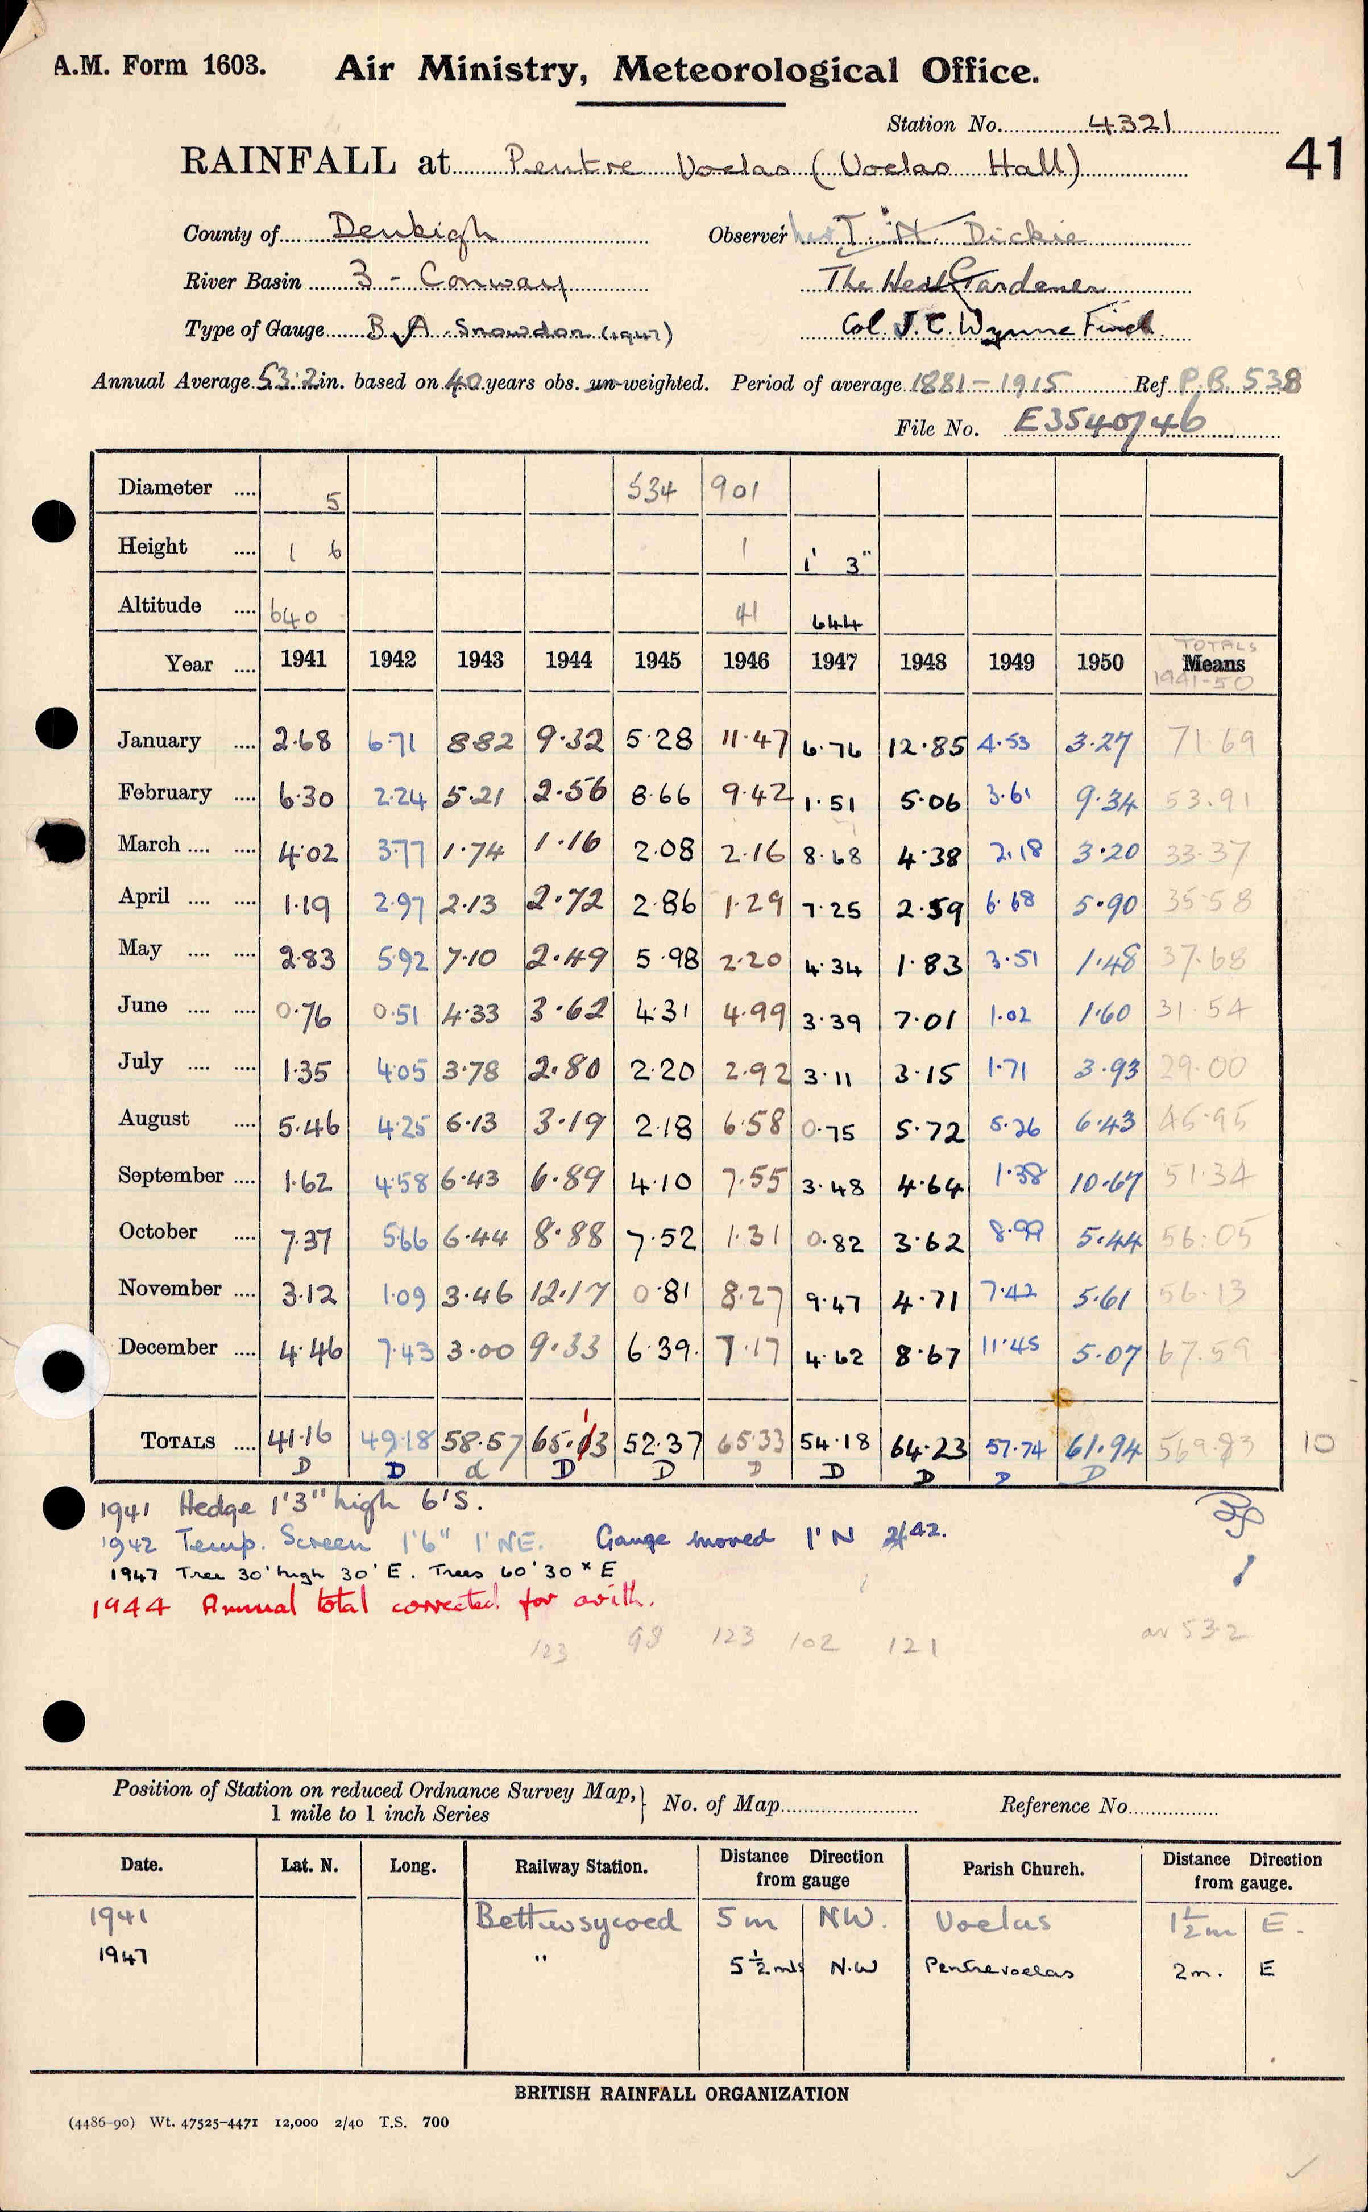 A.M. Form 1603. Air Ministry, Meteorological Office.
Station No. 4321
41
RAINFALL at Pentre Voelas (Voelas Hall)
County of Denbigh Observer T. N. Dickie
River Basin 3 - Conway The Head Gardener
Type of Gauge B A Snowdon (1947) Col J.C. Wynne Finch
Annual Average 53.2 in. based on 40 years obs. un-weighted. Period of average 1881-1915 Ref P.B. 538
File No. E3540/46
Diameter .... 5 534 901
Height .... 1 6 1 1' 3"
Altitude .... 640 41 644
Year .... 1941 1942 1943 1944 1945 1946 1947 1948 1949 1950 TOTALS Means 1941-50
January .... 2.68 6.71 8.82 9.32 5.28 11.47 6.76 12.85 4.53 3.27 71.69
February .... 6.30 2.24 5.21 2.56 8.66 9.42 1.51 5.06 3.61 9.34 53.91
March .... .... 4.02 3.77 1.74 1.16 2.08 2.16 8.68 4.38 2.18 3.20 33.37
April .... .... 1.19 2.97 2.13 2.72 2.86 1.29 7.25 2.59 6.68 5.90 35.58
May .... .... 2.83 5.92 7.10 2.49 5.98 2.20 4.34 1.83 3.51 1.48 37.68
June .... .... 0.76 0.51 4.33 3.62 4.31 4.99 3.39 7.01 1.02 1.60 31.54
July .... .... 1.35 4.05 3.78 2.80 2.20 2.92 3.11 3.15 1.71 3.93 29.00
August .... 5.46 4.25 6.13 3.19 2.18 6.58 0.75 5.72 5.26 6.43 45.95
September .... 1.62 4.58 6.43 6.89 4.10 7.55 3.48 4.64 1.38 10.67 51.34
October .... 7.37 5.66 6.44 8.88 7.52 1.31 0.82 3.62 8.99 5.44 56.05
November .... 3.12 1.09 3.46 12.17 0.81 8.27 9.47 4.71 7.42 5.61 56.13
December .... 4.46 7.43 3.00 9.33 6.39 7.17 4.62 8.67 11.45 5.07 67.59
TOTALS .... 41.16 49.18 58.57 65.13 52.37 65.33 54.18 64.23 57.74 61.94 569.83 10
D D d D D D D D D D
1941 Hedge 1'3" high 6'S.
1942 Temp. Screen 1'6" 1'NE. Gauge moved 1'N 2/42.
1947 Tree 30' high 30' E. Trees 60' 30x E
1944 Annual total corrected for arith.
123 98 123 102 121 av 53.2
Position of Station on reduced Ordnance Survey Map, 1 mile to 1 inch Series No. of Map Reference No.
Date. Lat. N. Long. Railway Station. Distance Direction from gauge Parish Church. Distance Direction from gauge.
1941 Bettwsycoed 5 m NW. Voelas 1½m E.
1947 " 5½ mls N.W Pentrevoelas 2m. E
BRITISH RAINFALL ORGANIZATION
(4486-90) Wt. 47525-4471 12,000 2/40 T.S. 700